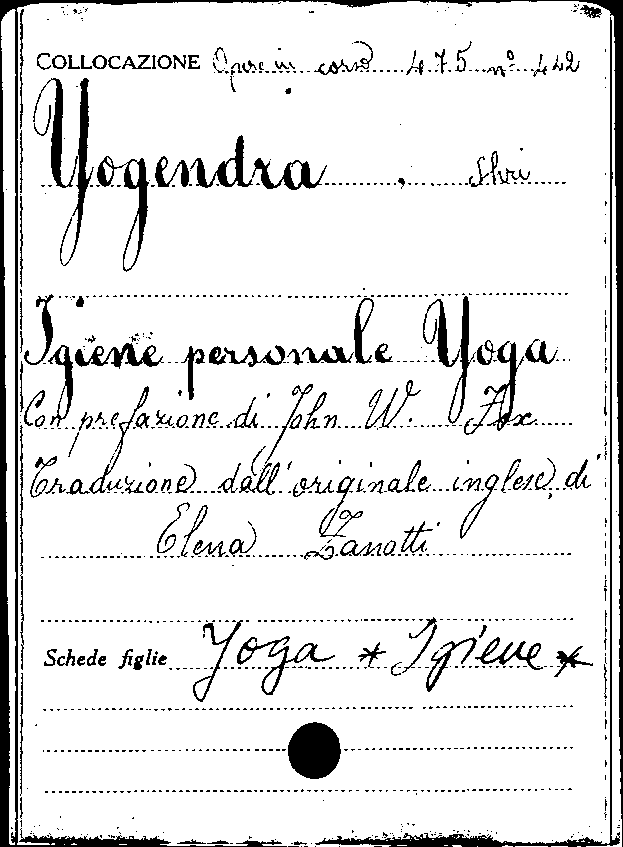 COLLOCAZIONE Opere in corso 475 nº 442
Yogendra , Shri
Igiene personale Yoga
Con prefazione di John W. Fox
Traduzione dall'originale inglese, di
Elena Zanotti
Schede figlie Yoga * Igiene *